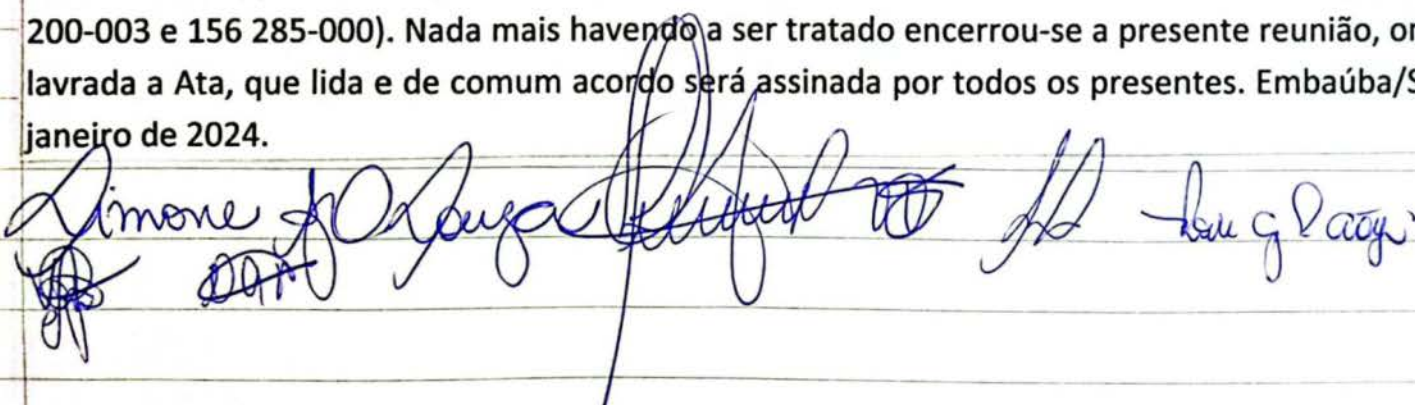 200-003 e 156 285-000). Nada mais havendo a ser tratado encerrou-se a presente reunião, or
lavrada a Ata, que lida e de comum acordo será assinada por todos os presentes. Embaúba/S
janeiro de 2024.
Simone Souza